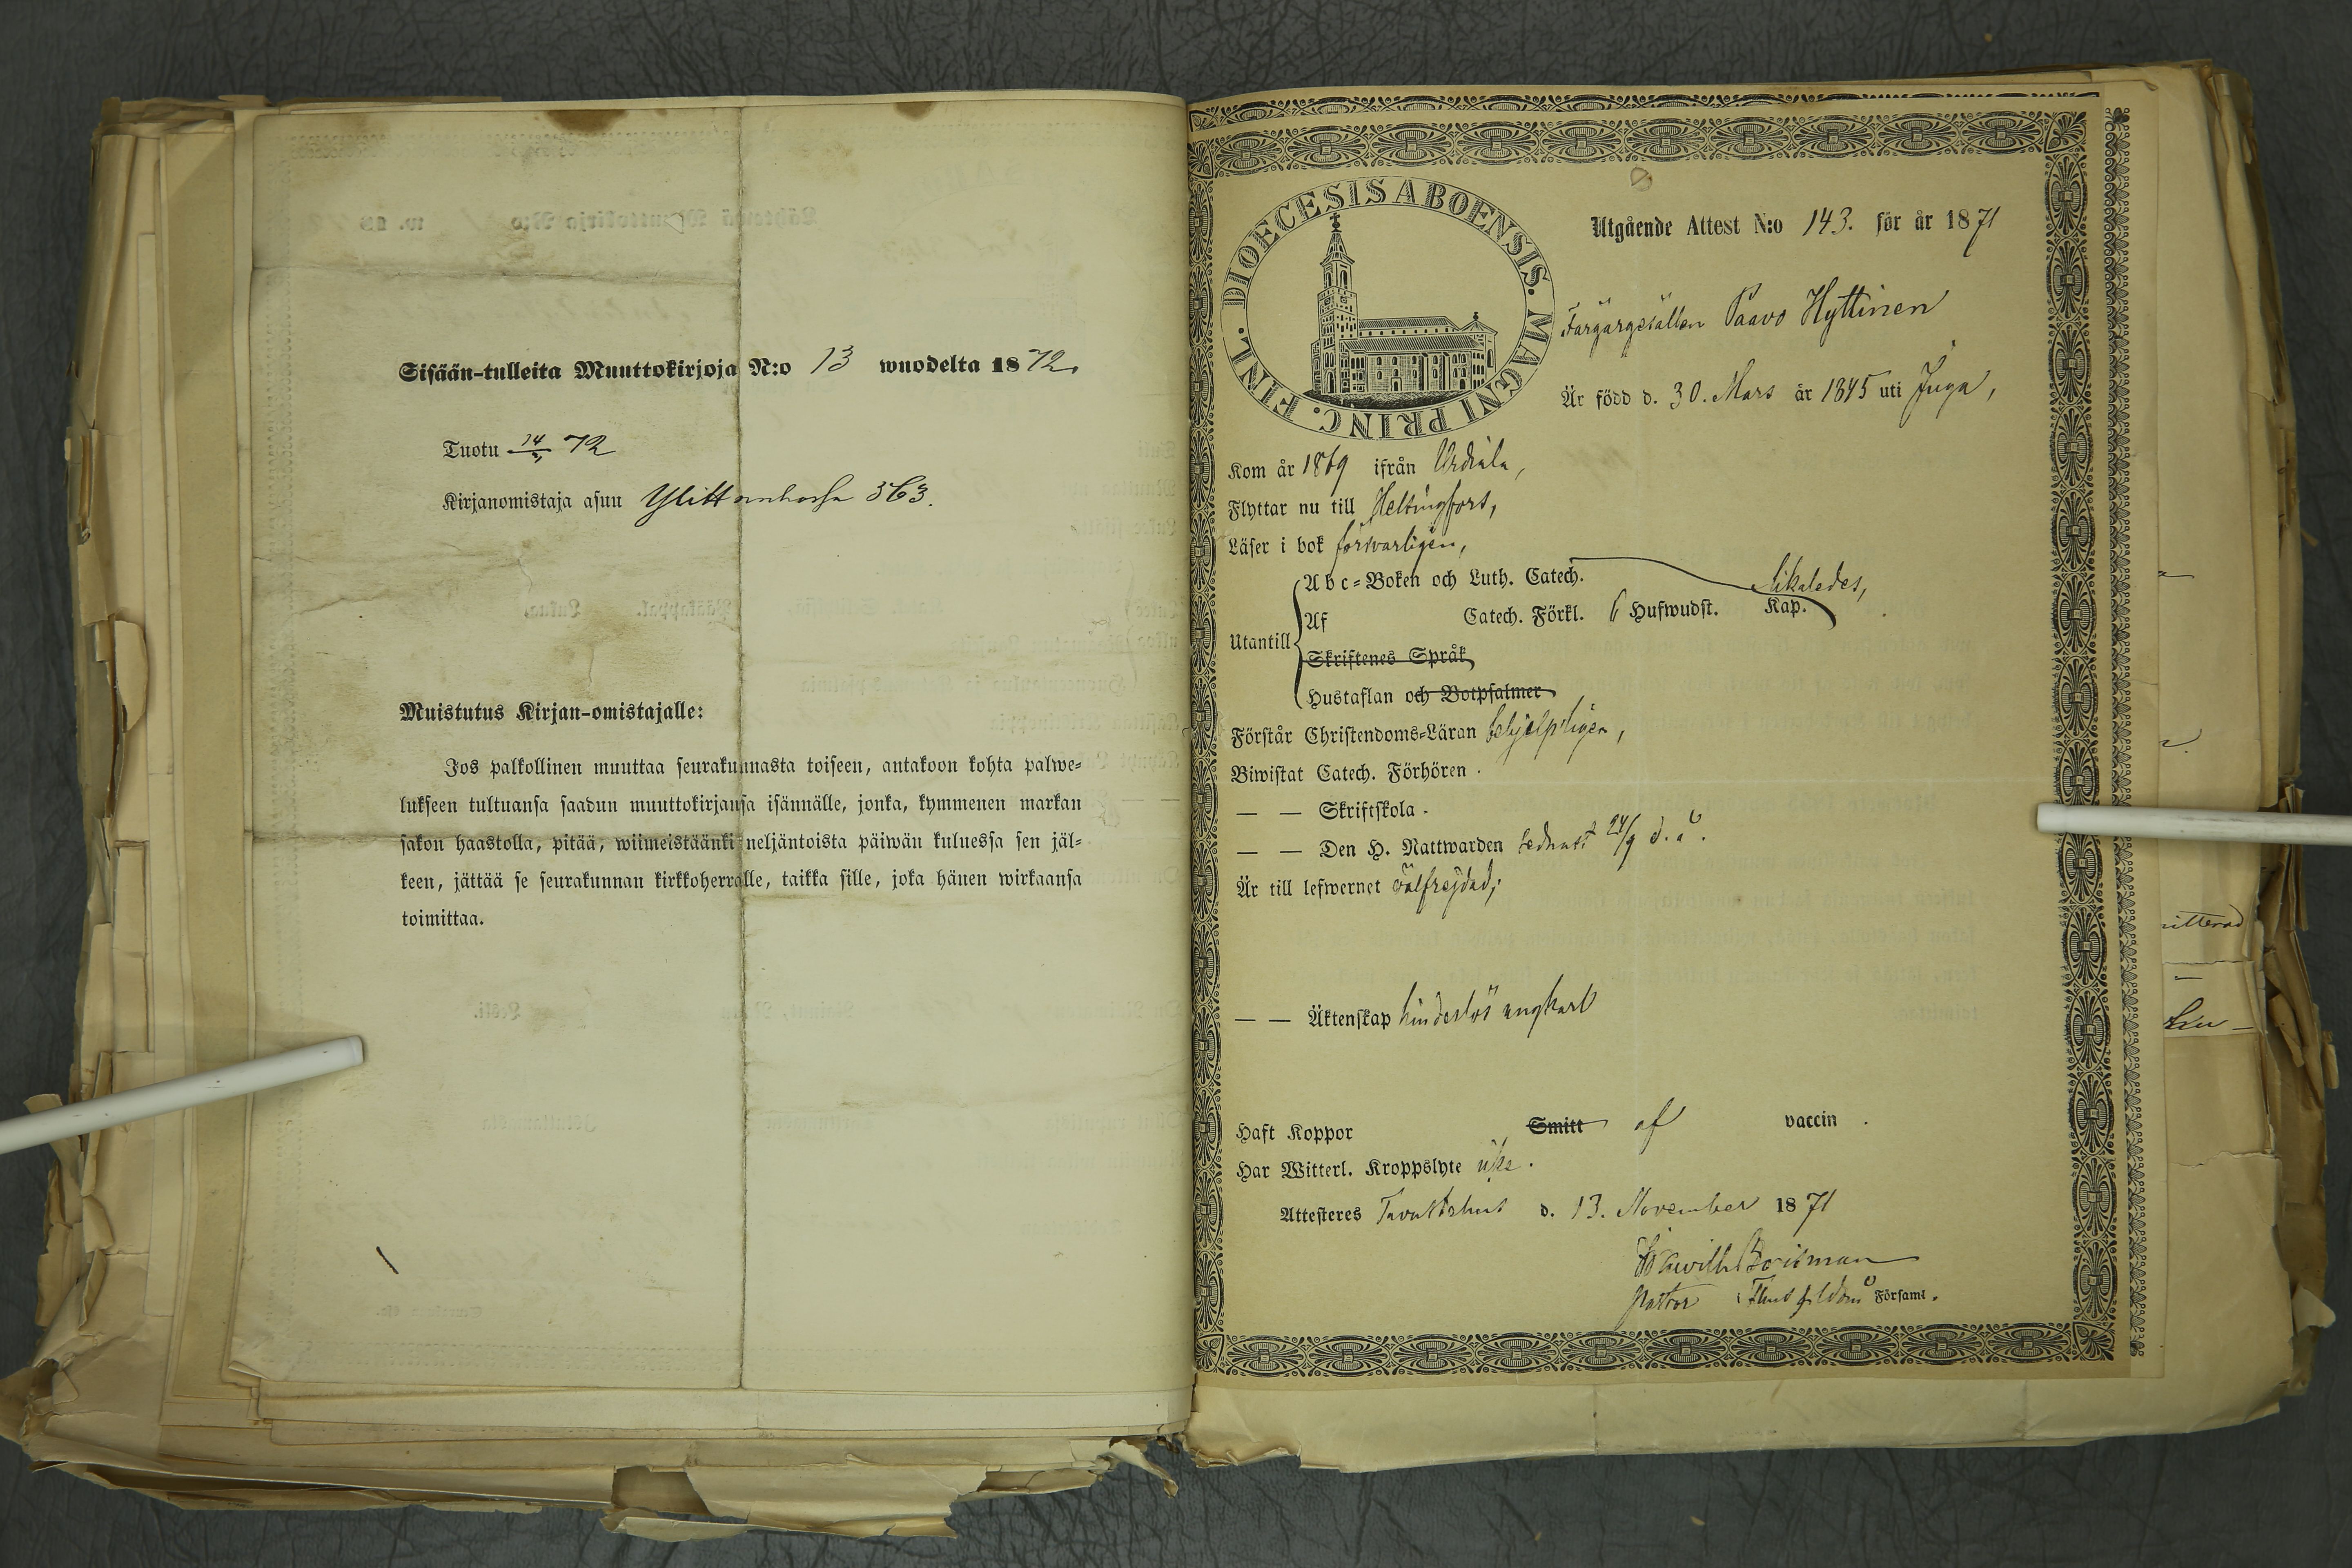 Sisään-tulleita Muuttokirjoja N:o 13 wuodelta 1872.
Tuotu 14/ 72
Kirjanomistaja asuu 363.
Muistutus Kirjan-omistajalle:
Jos palkollinen muuttaa seurakunnasta toiseen, antakoon kohta palwe-
lukseen tultuansa saadun muuttokirjansa isännälle, jonka, kymmenen markan
sakon haastolla, pitää, wiimeistäänki neljäntoista päiwän kuluessa sen jäl-
keen, jättää se seurakunnan kirkkoherralle, taikka sille, joka hänen wirkaansa
toimittaa.
DIOECESIS ABOENSIS. MAGNI PRINC. FINL.
Utgående Attest N:o 143. för år 1871
Färgargesällen Paavo Hyttinen
Är född d. 30. Mars år 1845 uti Juga,
Kom år 1869 ifrån Urdiala,
Flyttar nu till Helsingfors,
Läser i bok försvarligen,
Abc-Boken och Luth. Catech. likaledes,
Utantill Af Catech. Förkl. 6 Hufwudst. Kap.
Skriftenes Språk
Hustaflan och Botpsalmer
Förstår Christendoms-Läran behjelpligen,
Biwistat Catech. Förhören.
— — Skriftskola.
— — Den H. Nattwarden sednast 24/9 d. å.
Är till lefwernet välfrejdad,
— — Äktenskap hinderslös ungkarl
Haft Koppor Smitt af vaccin.
Har Witterl. Kroppslyte icke.
Attesteres Tavastehus d. 13. November 1871
Pastor i Församl.